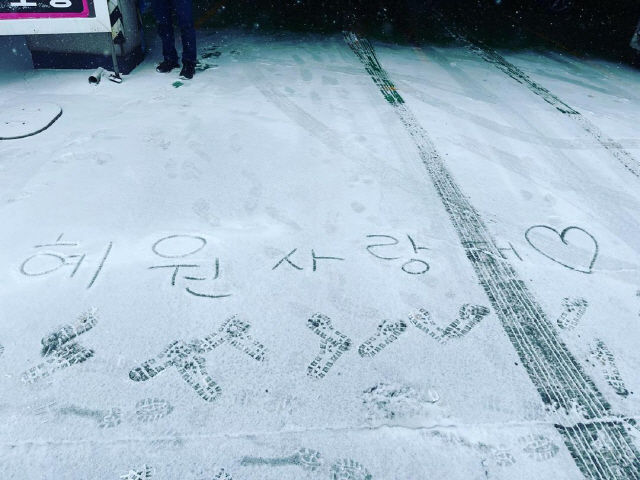 혜원 사랑해♡